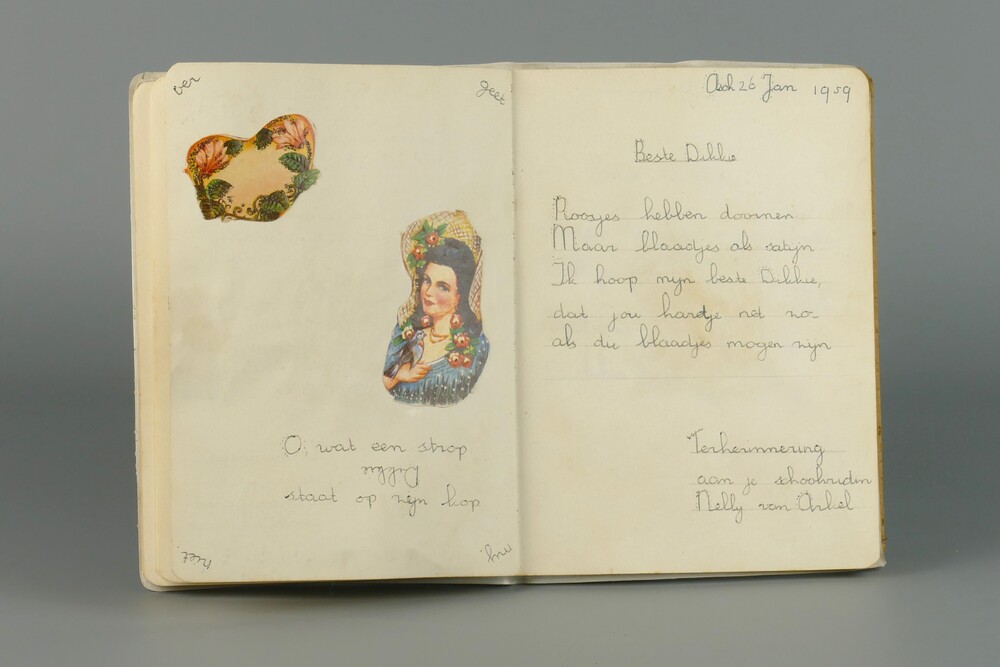 ver
geet
O, wat een strop
Dikkie
staat op zijn kop
niet.
mij.
Asch 26 Jan 1959
Beste Dikkie
Roosjes hebben doornen
Maar blaadjes als satijn
Ik hoop mijn beste Dikkie,
dat jou hartje net zo
als die blaadjes mogen zijn
Terherinnering
aan je schoolvriendin
Nelly van Arkel